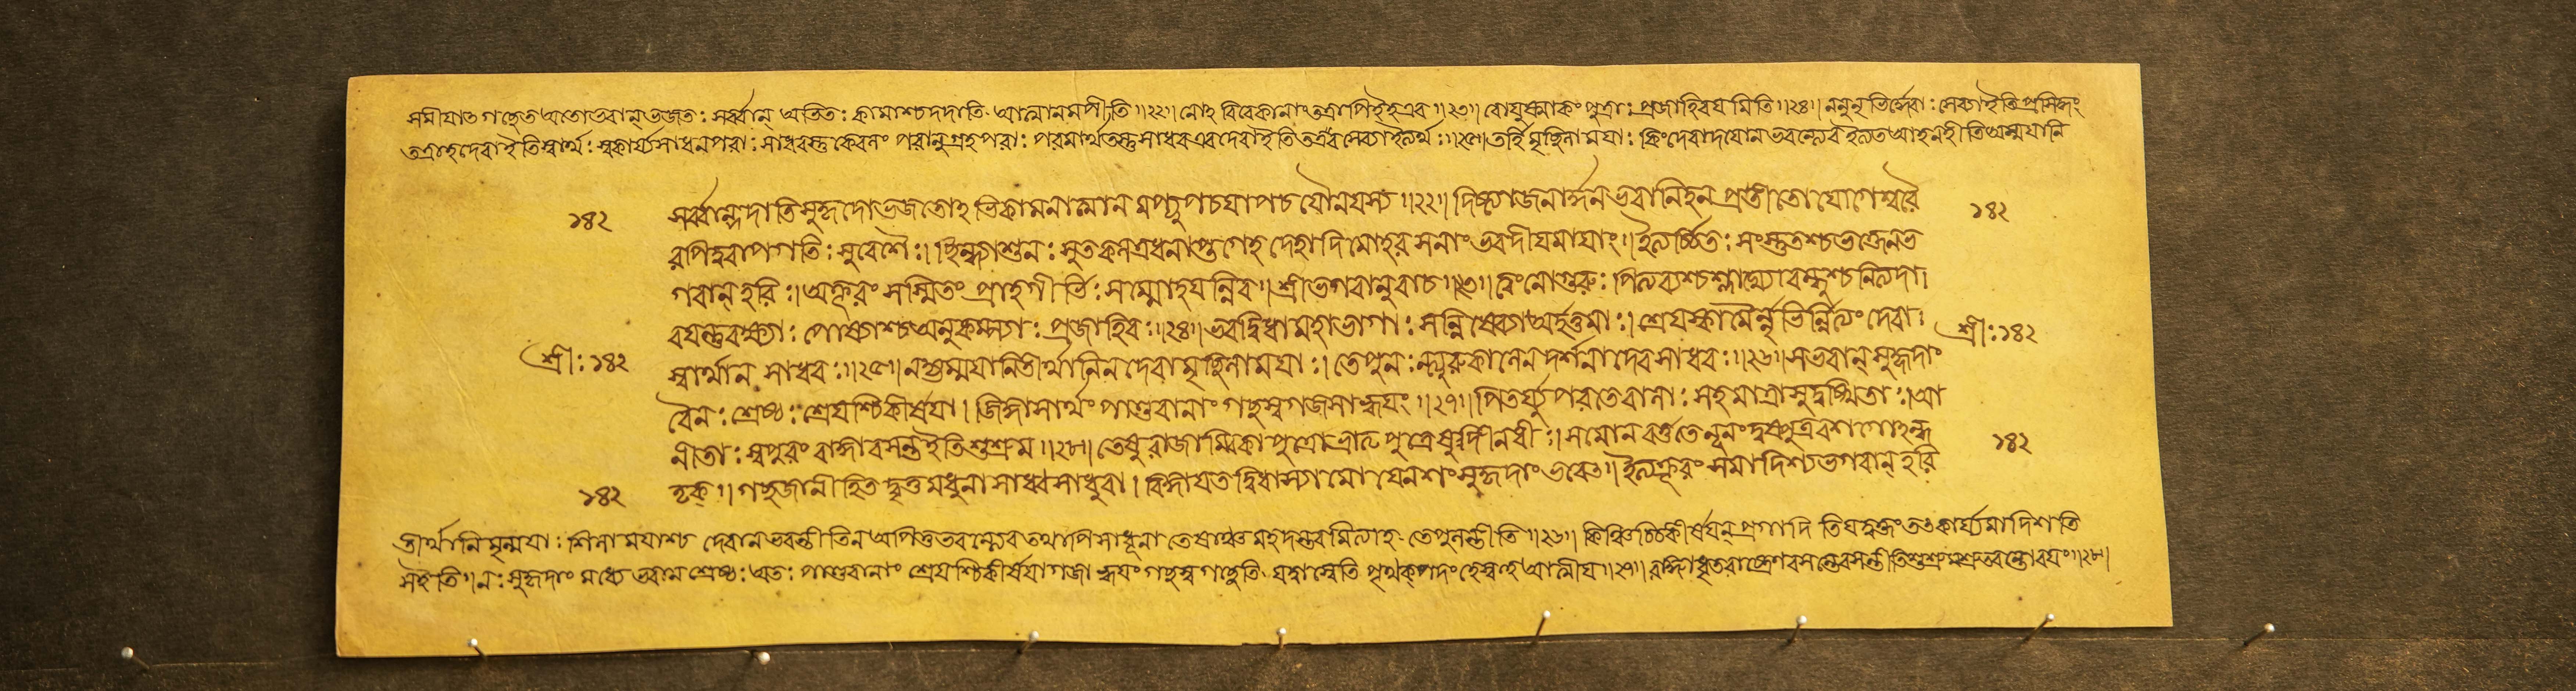 সমীযাত্ত গচ্ছেত অতো ভবান্ ভজতঃ সর্ব্বান্ অভিতঃ কামাংশ্চ দদাতি আত্মানমপীতি ॥২২॥ মোহ বিবেকানাং তত্রাপি ইহ এব ॥২৩॥ বো যুষ্মাকং পুত্রাঃ প্রজা হি বযমিতি ॥২৪॥ ননু নৃভির্দ্দেবাঃ সেব্যা ইতি প্রসিদ্ধং
তত্রাহ দেবা ইতি স্বার্থাঃ স্বকার্য্যসাধনপরাঃ সাধবস্তু কেবলং পরানুগ্রহপরাঃ পরমার্থতস্তু সাধব এব দেবা ইতি তত্রৈব সেব্যা ইত্যর্থঃ ॥২৫॥ তর্হি মৃচ্ছিলামযাঃ কিং দেবাদযো ন ভবন্ত্যেব ইত্যত আহ ন হীতি অম্মযানি
১৪২ সর্ব্বান্দদাতি সুহৃদো ভজতোঽভিকামনাত্মানমপ্যুপচযাপচযৌ ন যস্য ॥২২॥ দিষ্ট্যা জনার্দ্দন ভবানিহ নঃ প্রতীতো যোগেশ্বরৈ ১৪২
রপি দুরাপগতিঃ সুরেশৈঃ। ছিন্ধ্যাশু নঃ সুতকলত্রধনাপ্তগেহদেহাদিমোহরসনাং ভবদীযমাযাং। ইত্যর্চ্চিতঃ সংস্তুতশ্চ ভক্তেন ভ
গবান্ হরিঃ। অক্রূরং সস্মিতং প্রাহ গীর্ভিঃ সম্মোহযন্নিব। শ্রীভগবানুবাচ ॥২৩॥ ত্বং নো গুরুঃ পিতৃব্যশ্চ শ্লাঘ্যো বন্ধুশ্চ নিত্যদা।
বযন্তু রক্ষ্যাঃ পোষ্যাশ্চ অনুকম্প্যাঃ প্রজা হি বঃ ॥২৪॥ ভবদ্বিধা মহাভাগাঃ সন্নিষেব্যা অর্হত্তমাঃ। শ্রেযস্কামৈর্নৃভির্ন্নিত্যং দেবাঃ শ্রীঃ১৪২
শ্রীঃ১৪২ স্বার্থা ন সাধবঃ ॥২৫॥ নহ্যম্মযানি তীর্থানি ন দেবা মৃচ্ছিলামযাঃ। তে পুনন্ত্যুরুকালেন দর্শনাদেব সাধবঃ ॥২৬॥ স ভবান্ সুহৃদাং
বৈ নঃ শ্রেষ্ঠঃ শ্রেযশ্চিকীর্ষযা। জিজ্ঞাসার্থং পাণ্ডবানাং গচ্ছস্ব গজসাহ্বযং ॥২৭॥ পিতর্য্যুপরতে বালাঃ সহ মাত্রা সুদুঃখিতাঃ। আ
নীতাঃ স্বপুরং রাজ্ঞা বসন্ত ইতি শুশ্রুম ॥২৮॥ তেষু রাজাম্বিকাপুত্রো ভ্রাতৃপুত্রেষু দীনধীঃ। সমো ন বর্ত্ততে নূনং দুষ্পুত্রবশগোঽন্ধ ১৪২
১৪২ দৃক্। গচ্ছ জানীহি তদ্বৃত্তমধুনা সাধ্বসাধু বা। বিজ্ঞায তদ্বিধাস্যামো যেন শং সুহৃদাং ভবেৎ। ইত্যক্রূরং সমাদিশ্য ভগবান্ হরি
তীর্থানি মৃন্মযাঃ শিলামযাশ্চ দেবা ন ভবন্তীতি ন অপিতু ভবন্ত্যেব তথাপি সাধূনাং তেষাঞ্চ মহদন্তরমিত্যাহ তে পুনন্তীতি ॥২৬॥ কিঞ্চিচ্চিকীর্ষযন্ প্রগাদিতি যদুক্তং তৎকার্য্যমাদিশতি
স ইতি। নঃ সুহৃদাং মধ্যে ভবান্ শ্রেষ্ঠঃ অতঃ পাণ্ডবানাং শ্রেযশ্চিকীর্ষযা গজাহ্বযং গচ্ছস্ব গচ্ছেতি যদ্বা স্বেতি পৃথক্পদং হে স্ব হে আত্মীয ॥২৭॥ রাজ্ঞা ধৃতরাষ্ট্রেণ বসন্তে বসন্তীতি শুশ্রুম শ্রুতবন্তো বযং ॥২৮॥